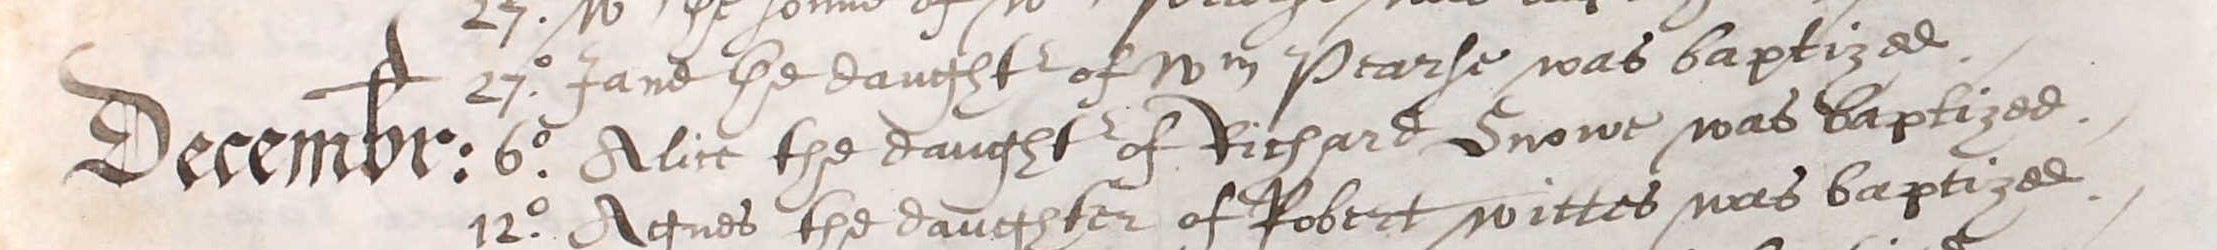 27. W^m the sonne of W^m Pearse was baptized
27.º Jane the daught^r of W^m Pearse was baptized.
Decembr: 6.º Alice the daught^r of Richard Snowe was baptized.
12.º Agnes the daughter of Robert wittes was baptized.